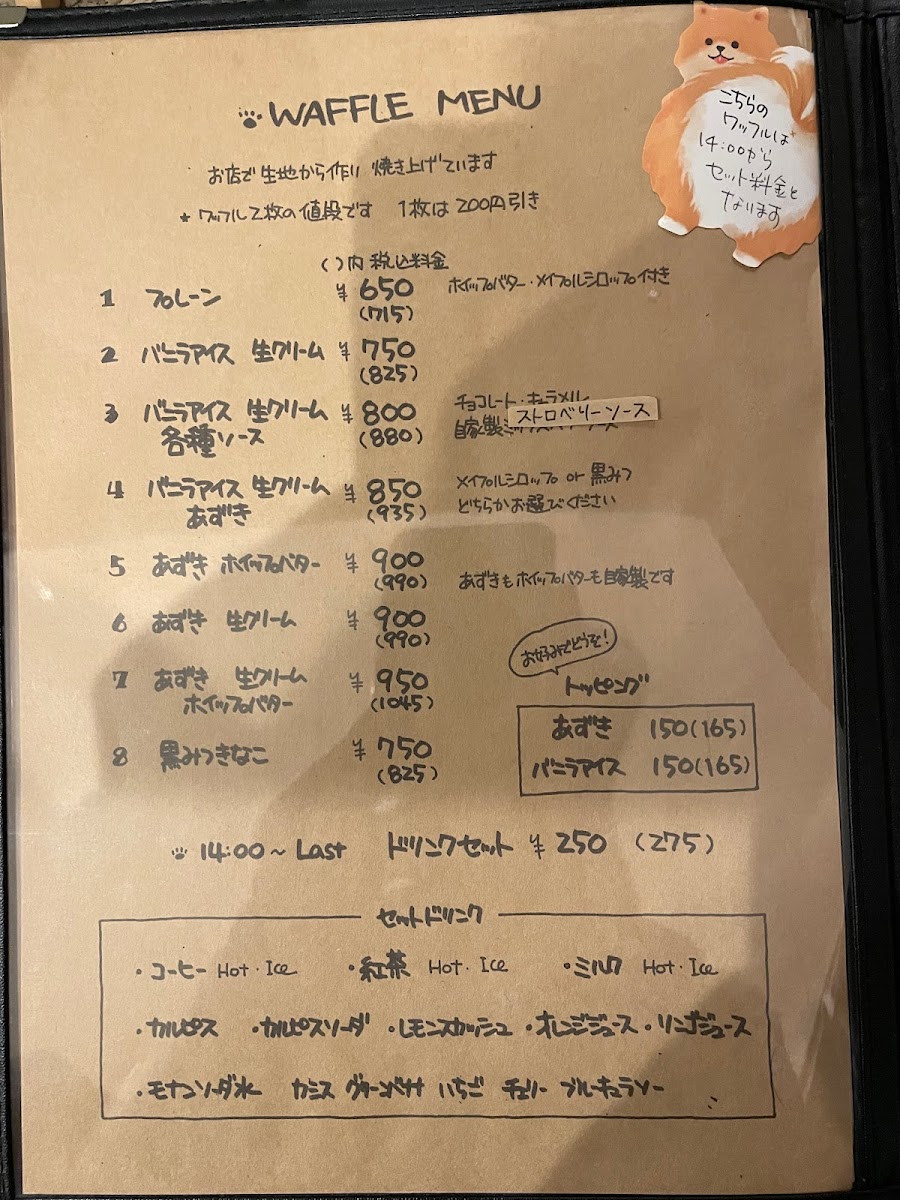 WAFFLE MENU
こちらの
ワッフルは
14:00から
セット料金と
なります
お店で生地から作り 焼き上げています
* ワッフル2枚の値段です 1枚は200円引き
( )内 税込料金
1 プレーン ¥650 ホイップバター・メイプルシロップ付き
(715)
2 バニラアイス 生クリーム ¥750
(825)
3 バニラアイス 生クリーム ¥800 チョコレート・キャラメル
各種ソース (880) 自家製 ストロベリーソース
4 バニラアイス 生クリーム ¥850 メイプルシロップ or 黒みつ
あずき (935) どちらかお選びください
5 あずき ホイップバター ¥900
(990) あずきもホイップバターも自家製です
6 あずき 生クリーム ¥900
(990)
お好みでどうぞ!
7 あずき 生クリーム ¥950 トッピング
ホイップバター (1045)
あずき 150(165)
8 黒みつきなこ ¥750
(825)
バニラアイス 150(165)
14:00~Last ドリンクセット ¥250 (275)
セットドリンク
・コーヒー Hot・Ice ・紅茶 Hot・Ice ・ミルク Hot・Ice
・カルピス ・カルピスソーダ ・レモンスカッシュ ・オレンジジュース ・リンゴジュース
・モナンソーダ水 カシス グリーンバナナ いちご チェリー ブルーキュラソー